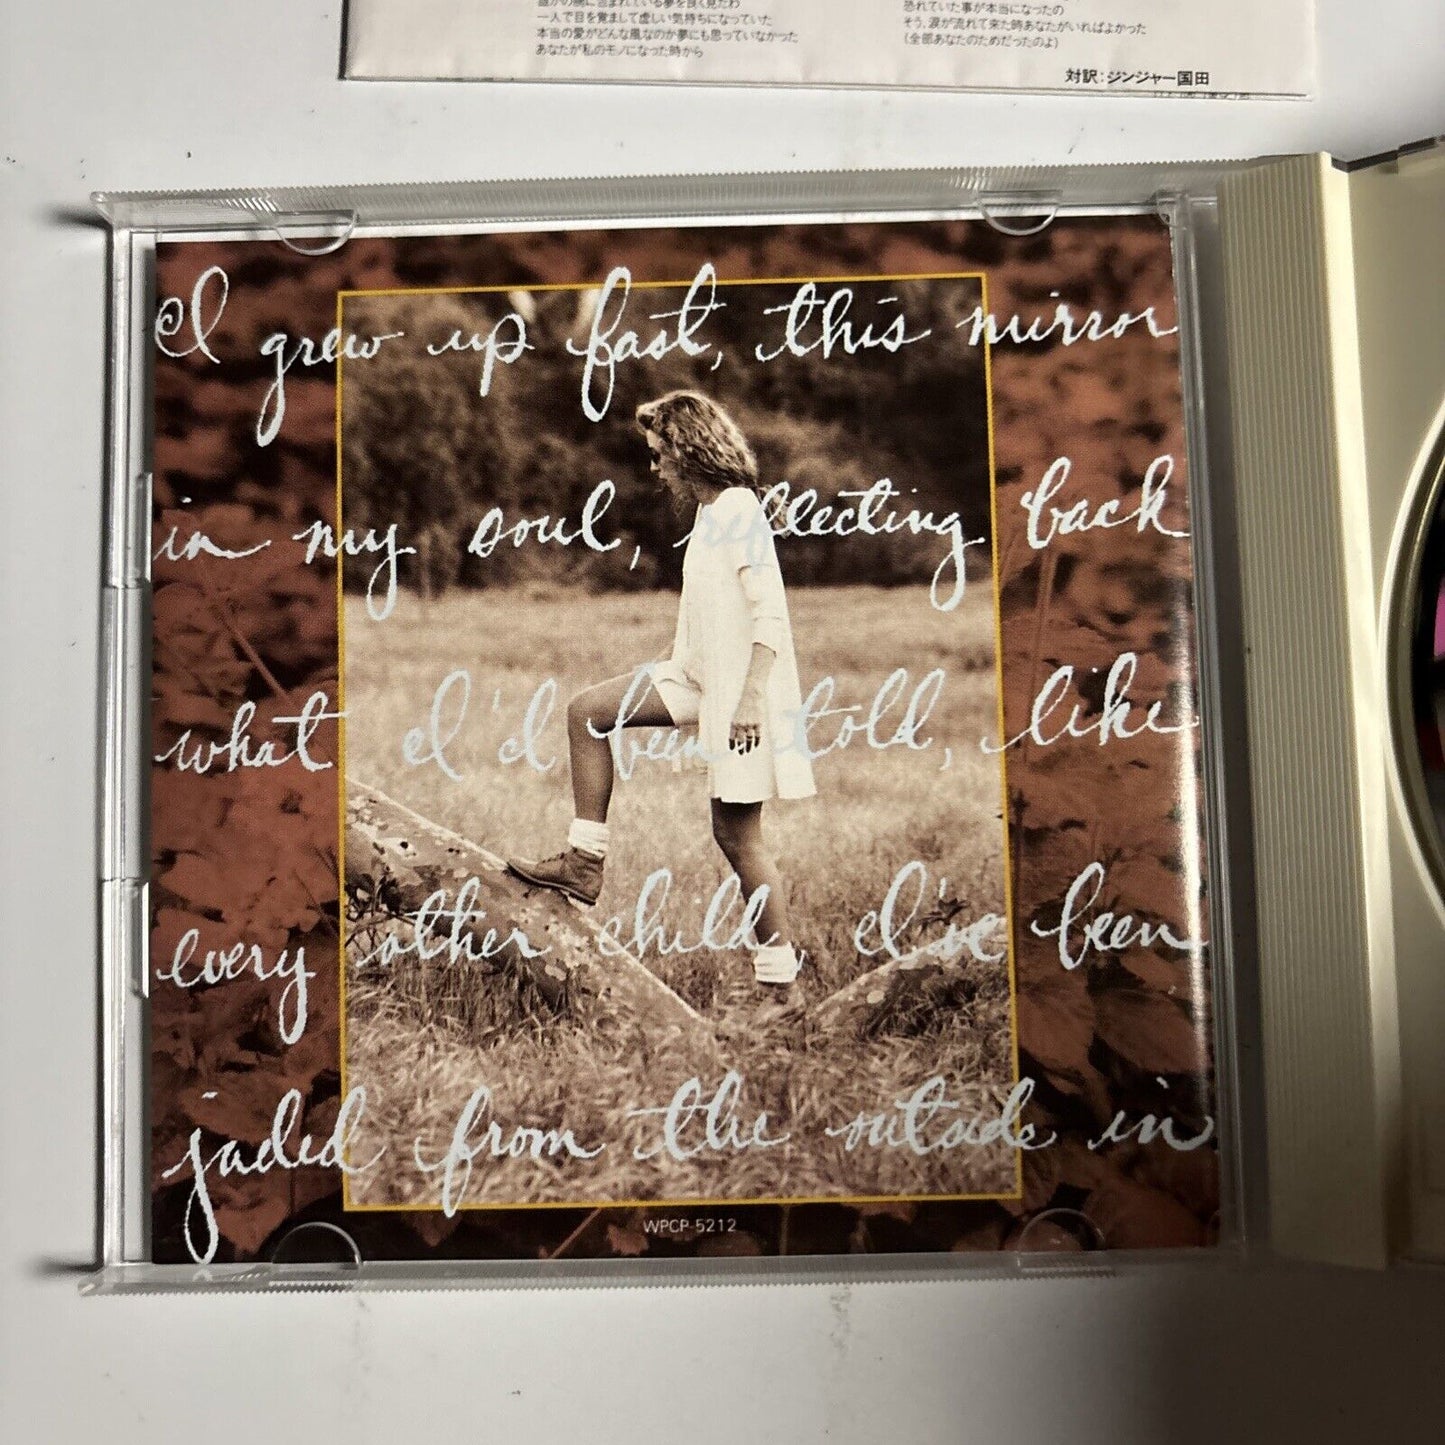 誰かの腕に包まれている夢を良く見たわ
一人で目を覚まして虚しい気持ちになっていた
本当の愛がどんな風なのか夢にも思っていなかった
あなたが私のモノになった時から
恐れていた事が本当になったの
そう、涙が流れて来た時あなたがいればよかった
(全部あなたのためだったのよ)
対訳:ジンジャー国田
I grew up fast, this mirror
in my soul, reflecting back
what I'd been told, like
every other child, I've been
jaded from the outside in
WPCP-5212